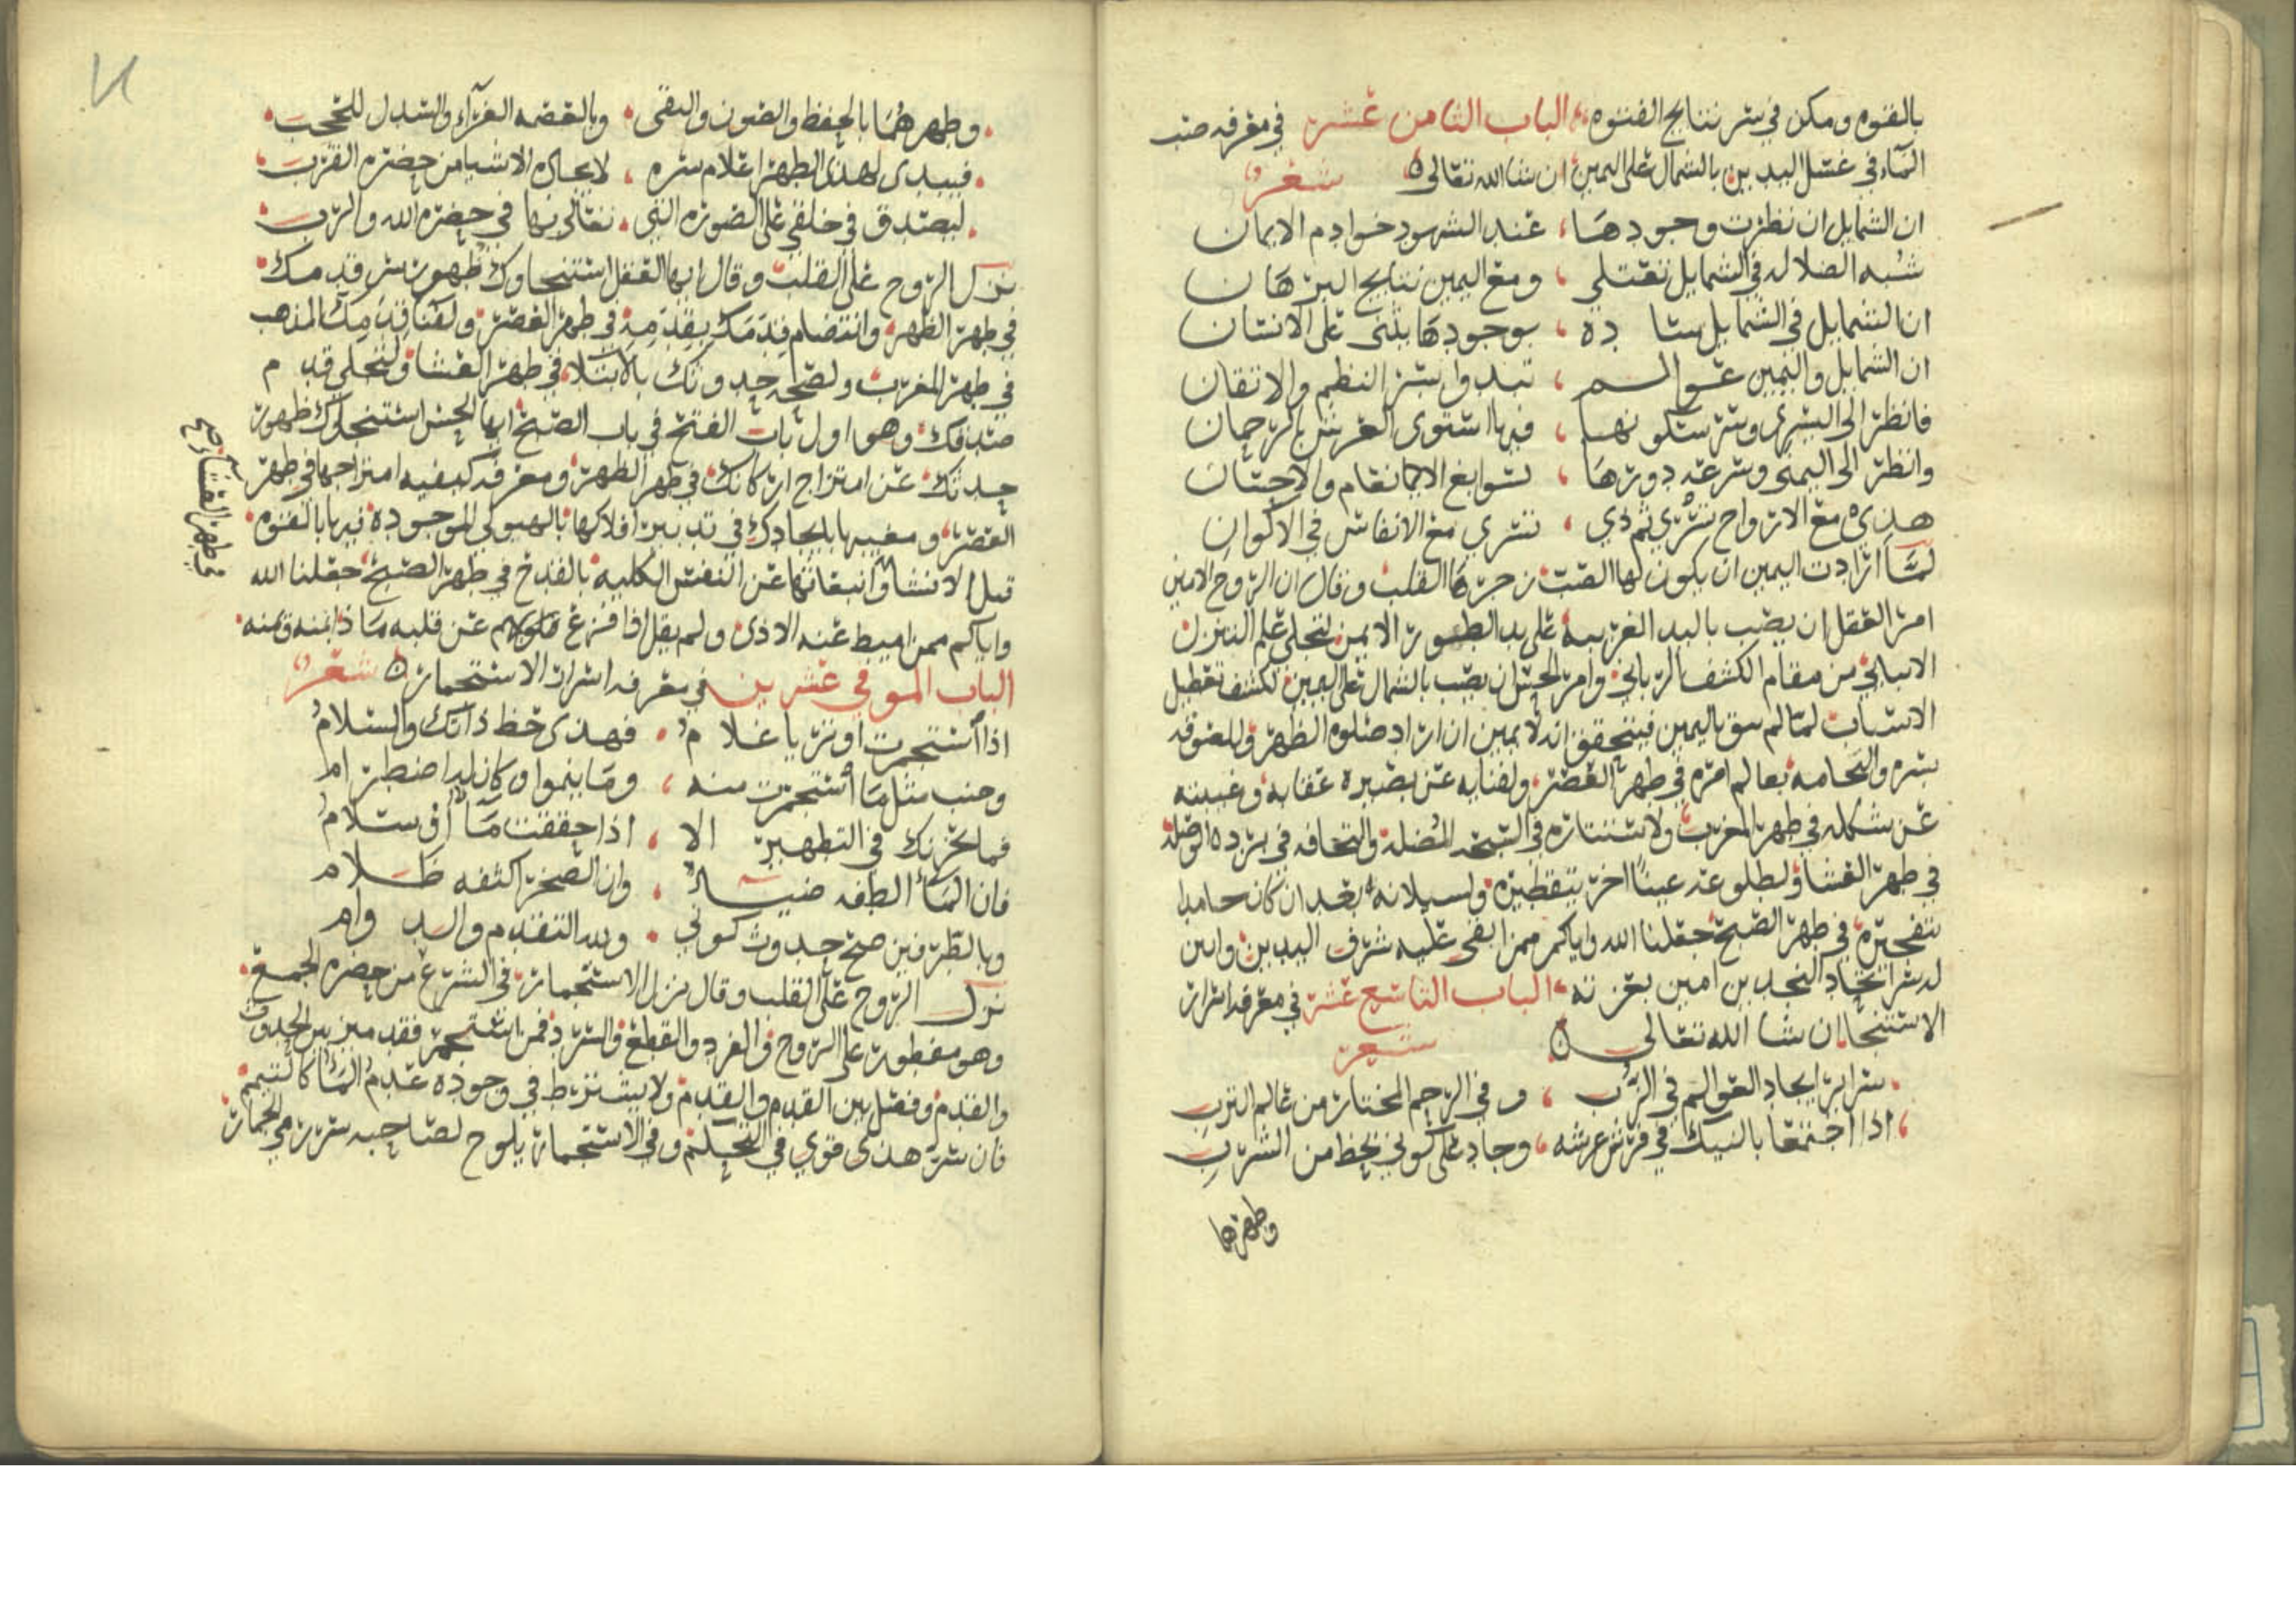 بالفتوه ومكن في سر نتايج الفتوه الباب الثامن عشر في معرفه صب
الماء في غسل اليدين بالشمال على اليمين ان شا الله تعالى شعر
ان الشمايل ان نظرت وجودها عند الشهود خوادم الايمان
شبه الضلاله في الشمايل تعتلي ومع اليمين نتايج البرهان
ان الشمايل في الشمايل ساده بوجودها يثنى على الانسان
ان الشمايل واليمين عوالم تبدوا بسر النظم والاتقان
فانظر الى اليسرى وسر سكونها فبها استوى العرش بالرحمان
وانظر الى اليمنى وسرعه دورها لسوابغ الانعام والاحسان
هذي مع الارواح تسري ثم ذي تسري مع الانفاس في الاكوان
لما ارادت اليمين ان يكون لها الصب زجرها القلب وقال ان الروح الامين
امر العقل ان يصب باليد الغربيه على يد الطور الايمن لتجلي علم التنزل
الانبائي من مقام الكشف الرباني وامر الحس ان يصب بالشمال على اليمين لكشف تعطيل
الاسباب لما لم سق باليمين فيتحقق انه لا يمين ان اراد صلوه الظهر وللعوقه
بسره والتحامه بعالم امره في طهر العصر ولفنايه عن بصيره عقابه وغيبته
عن شكله في طهر المغرب ولاستتاره في السحر المضله والتحافه في برده الوصله
في طهر العشا ولطلوعه عينا اخر بتقطيره ولسيلانه بعد ان كان جامدا
بتفجيره في طهر الصبح جعلنا الله واياكم ممن ابقى عليه شرف اليدين وابين
له سر اتخاد النجدين امين بعزته الباب التاسع عشر في معرفه اسرار
الاستنجا ان شا الله تعالى
شعر
سراير ايجاد العوالم في الرب وفي الرحم المختار من عالم الترب
اذا اجتمعا بالنيك في فرش عرشه وجاد على كوني بحظ من الشرب
وطهرها
وطهرهما بالحفظ والصون والبقى وبالقصه الغراء والسدل للحجب
فيبدى لهذى الطهر اعلام سره لايجاده الاشيا من حضره القرب
ليصدق في خلقي على الصوره التي تعالى بها في حضره الله والرب
نزل الروح على القلب وقال ايها العقل استنجاوك ظهور سر قدمك
في طهر الظهر وانتضام قدمك بقدمه في طهر العصر ولفنا قدمك المذهب
في طهر المغرب ولصحه حدوثك بالابتلا في طهر العشا ولتجلي قدم
صدقك وهو اول باب الفتح في باب الصبح ايها الحس استنجاوك ظهور
حدثك عن امتزاج اركانك في طهر الظهر ومعرفه كيفيه امتزاجها في طهر
العصر ومغيبها بايجادك في تدبير افلاكها بالهيولى الموجوده فيها بالقوه
في طهر العشا صح
قبل الانشاء وانبعاثها عن النفس الكليه بالقدح في طهر الصبح جعلنا الله
واياكم ممن اميط عنه الاذى ولم يقل اذا فزع عن قلبه ماذا بمنه ويمنه
الباب الموفي عشرين في معرفه اسرار الاستجمار شعر
اذا استجمرت اوتر يا غلام فهذى حظ ذاتك والسلام
وجنب مثل ما استجمرت منه وما ينموا وكان له اضطرام
فما يجزيك في التطهير الا اذا حققت ماء او سلام
فان الماء الطفه ضياء وان الصخر اكثفه ظلام
وبالطرفين صح حدوث كوني ولله التقدم والدوام
نزل الروح على القلب وقال نزل الاستجمار في الشرع من حضره الجمع
وهو مفطور على الزوج والفرد والقطع والسرد فمن استجمر فقد ميز بين الحدوث
والقدم وفصل بين القدم والقدم ولا يشترط في وجوده عدم الماء كالتيمم
فان سره هذى قوي في التحكم وفي الاستجمار يلوح لصاحبه سر رمي الجمار